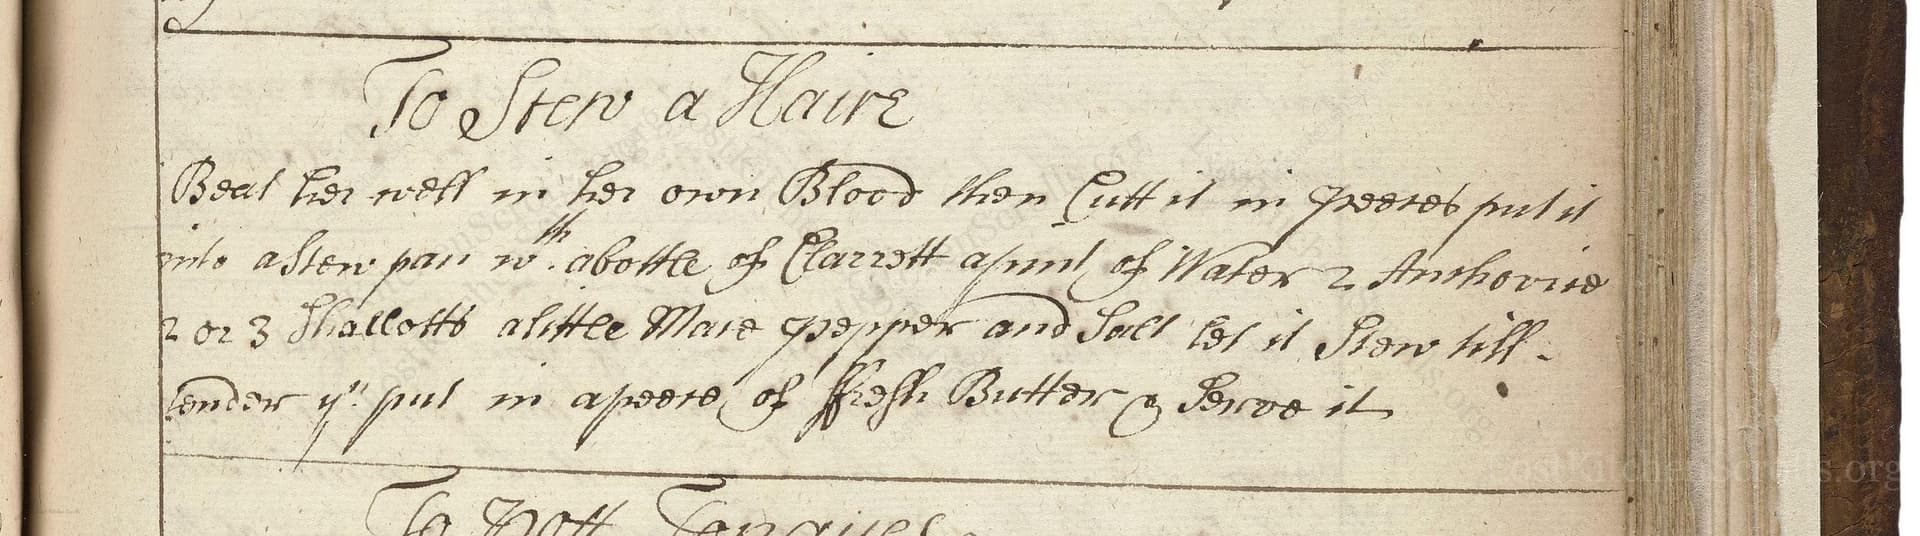 To Stew a Haire
Beat her well in her own Blood then Cutt it in peeces put it
into a Stew pan wth. a bottle of Clarrett a pint of Water 2 Anchovies
2 or 3 Shallotts a little Mace pepper and Salt let it Stew till
tender yn put in a peece of ffresh Butter & Serve it
LostKitchenScrolls.org
To Pott